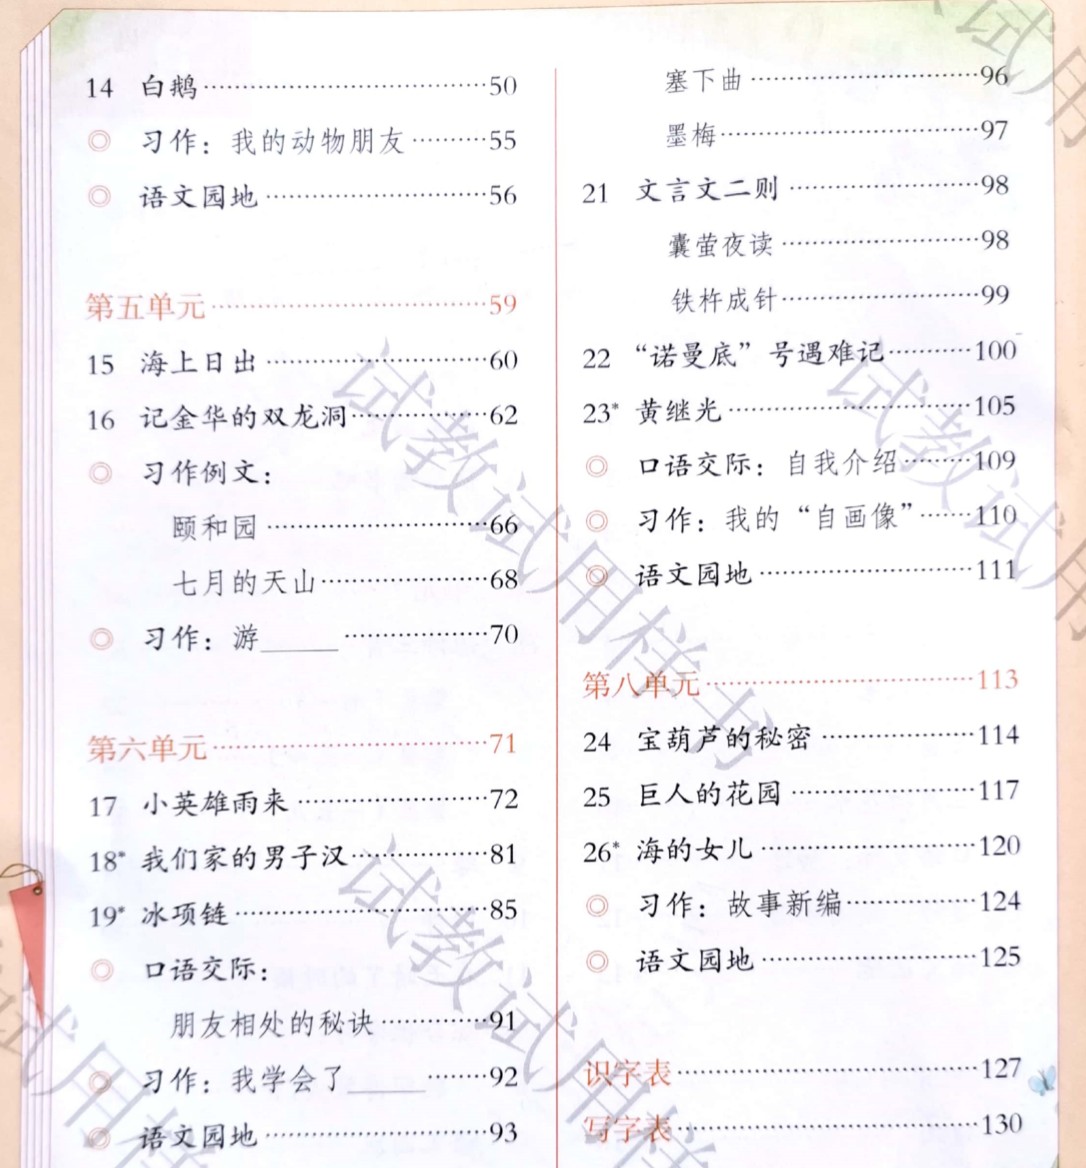 14 白鹅……………………………50
◎ 习作：我的动物朋友………55
◎ 语文园地……………………56
第五单元…………………………59
15 海上日出……………………60
16 记金华的双龙洞……………62
◎ 习作例文：
颐和园……………………66
七月的天山………………68
◎ 习作：游_____ ……………70
第六单元…………………………71
17 小英雄雨来…………………72
18* 我们家的男子汉……………81
19* 冰项链………………………85
◎ 口语交际：
朋友相处的秘诀…………91
◎ 习作：我学会了_____ ……92
◎ 语文园地……………………93
塞下曲……………………96
墨梅………………………97
21 文言文二则…………………98
囊萤夜读…………………98
铁杵成针…………………99
22 “诺曼底”号遇难记………100
23* 黄继光……………………105
◎ 口语交际：自我介绍………109
◎ 习作：我的“自画像”……110
◎ 语文园地…………………111
第八单元………………………113
24 宝葫芦的秘密……………114
25 巨人的花园………………117
26* 海的女儿…………………120
◎ 习作：故事新编…………124
◎ 语文园地…………………125
识字表…………………………127
写字表…………………………130
试教试用样书
试教试用样书